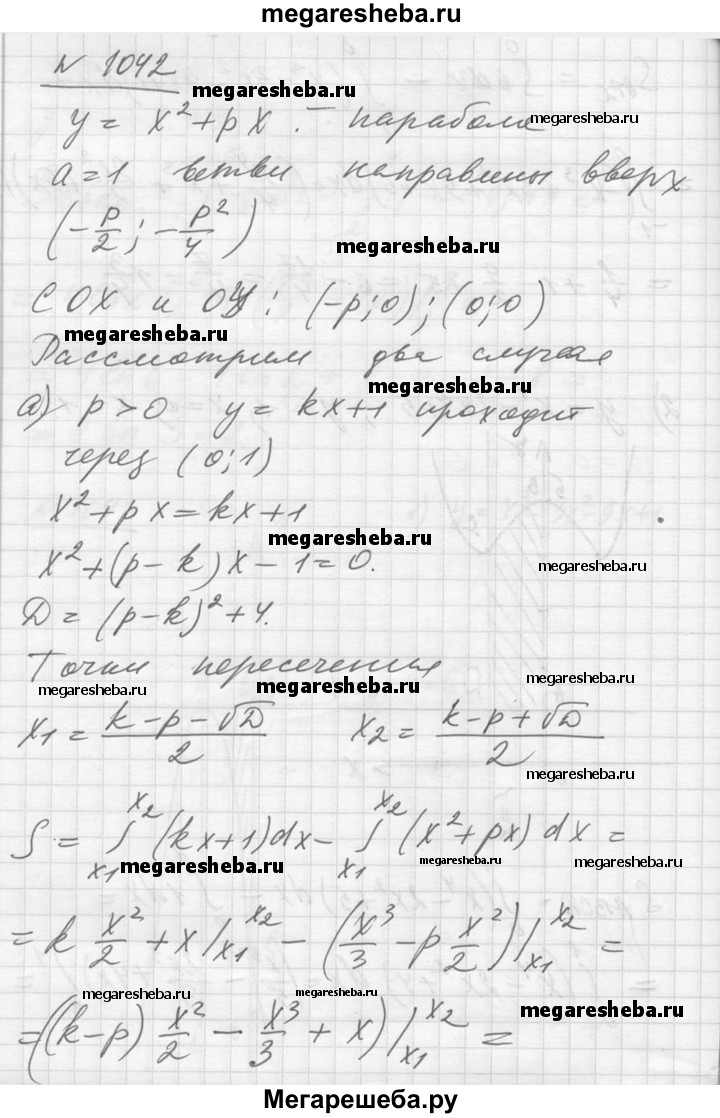 megaresheba.ru
N 1042
megaresheba.ru
y = x² + px. – парабола
megaresheba.ru
a = 1 ветви направлены вверх
(-p/2; -p²/4)
megaresheba.ru
С OX и OY: (-p; 0); (0; 0)
megaresheba.ru
Рассмотрим два случая
megaresheba.ru
а) p > 0 y = kx+1 проходит
через (0; 1)
x² + px = kx + 1
megaresheba.ru
x² + (p - k)x - 1 = 0.
megaresheba.ru
D = (p-k)² + 4.
Точки пересечения
megaresheba.ru
megaresheba.ru
megaresheba.ru
x₁ = (k-p-√D)/2 x₂ = (k-p+√D)/2
megaresheba.ru
S = ∫ₓ₁ˣ² (kx+1)dx - ∫ₓ₁ˣ² (x²+px)dx =
megaresheba.ru
megaresheba.ru
megaresheba.ru
= k x²/2 + x |ₓ₁ˣ² - (x³/3 - p x²/2)|ₓ₁ˣ² =
megaresheba.ru
megaresheba.ru
megaresheba.ru
= ((k-p) x²/2 - x³/3 + x)|ₓ₁ˣ² =
Мегарешеба.ру